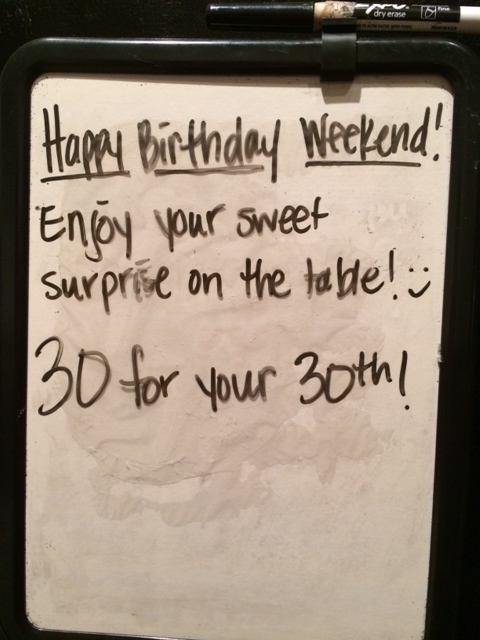 dry erase
Happy Birthday Weekend!
Enjoy your sweet
surprise on the table! :)
30 for your 30th!